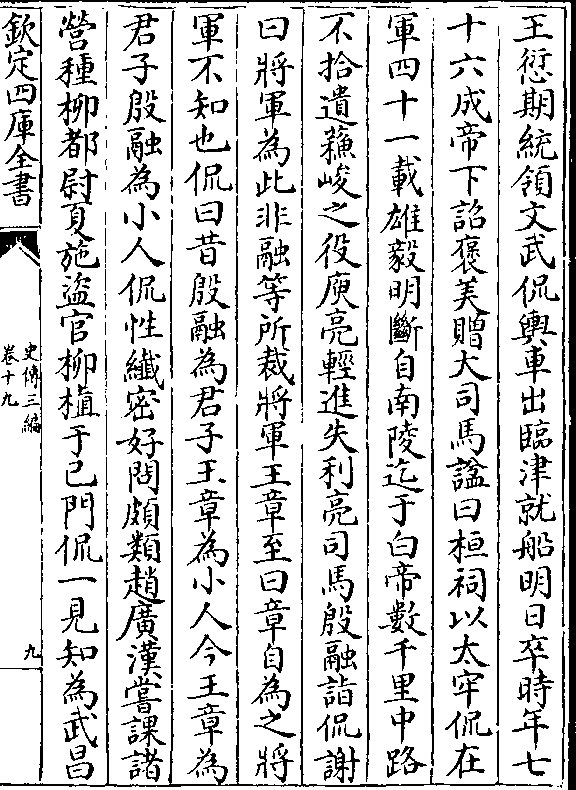 王愆期統領文武侃輿車出臨津就船明日卒時年七
十六成帝下詔褒美贈大司馬諡曰桓祠以太牢侃在
軍四十一載雄毅明斷自南陵迄于白帝數千里中路
不拾遺蘓峻之役庾亮輕進失利亮司馬殷融詣侃謝
曰將軍為此非融等所裁將軍王章至曰章自為之將
軍不知也侃曰昔殷融為君子王章為小人今王章為
君子殷融為小人侃性纖密好問頗類趙廣漢嘗課諸
營種柳都尉夏施盜官柳植于己門侃一見知為武昌
欽定四庫全書
史傳三編
卷十九
九